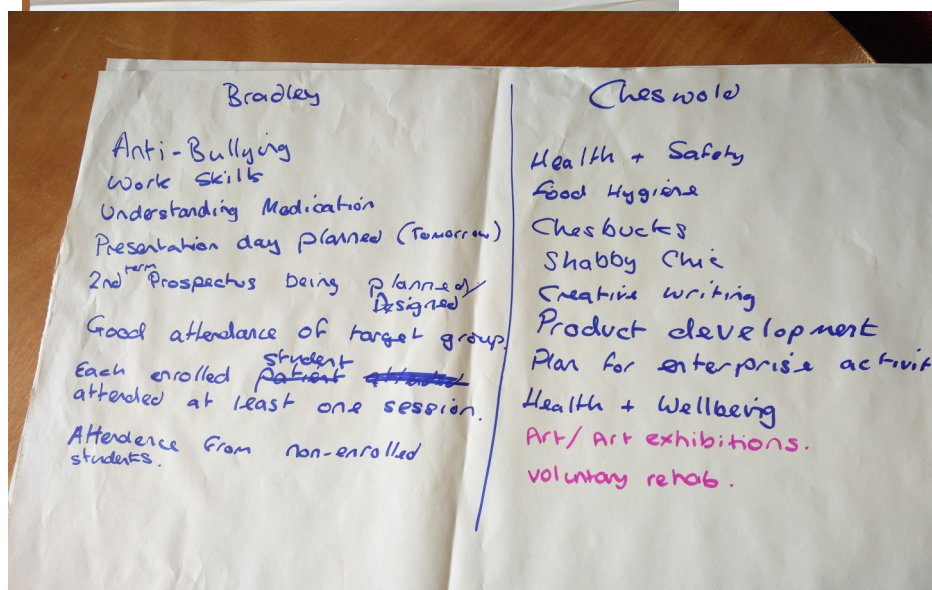 Bradley
Anti-Bullying
Work Skills
Understanding Medication
Presentation day planned (Tomorrow)
2nd term Prospectus being planned/
Designed
Good attendance of target group.
Each enrolled patient student
attended at least one session.
Attendence from non-enrolled
students.
Cheswold
Health + Safety
Food Hygiene
Chesbucks
Shabby Chic
Creative writing
Product development
Plan for enterprise activit
Health + Wellbeing
Art/ Art exhibitions.
voluntary rehab.